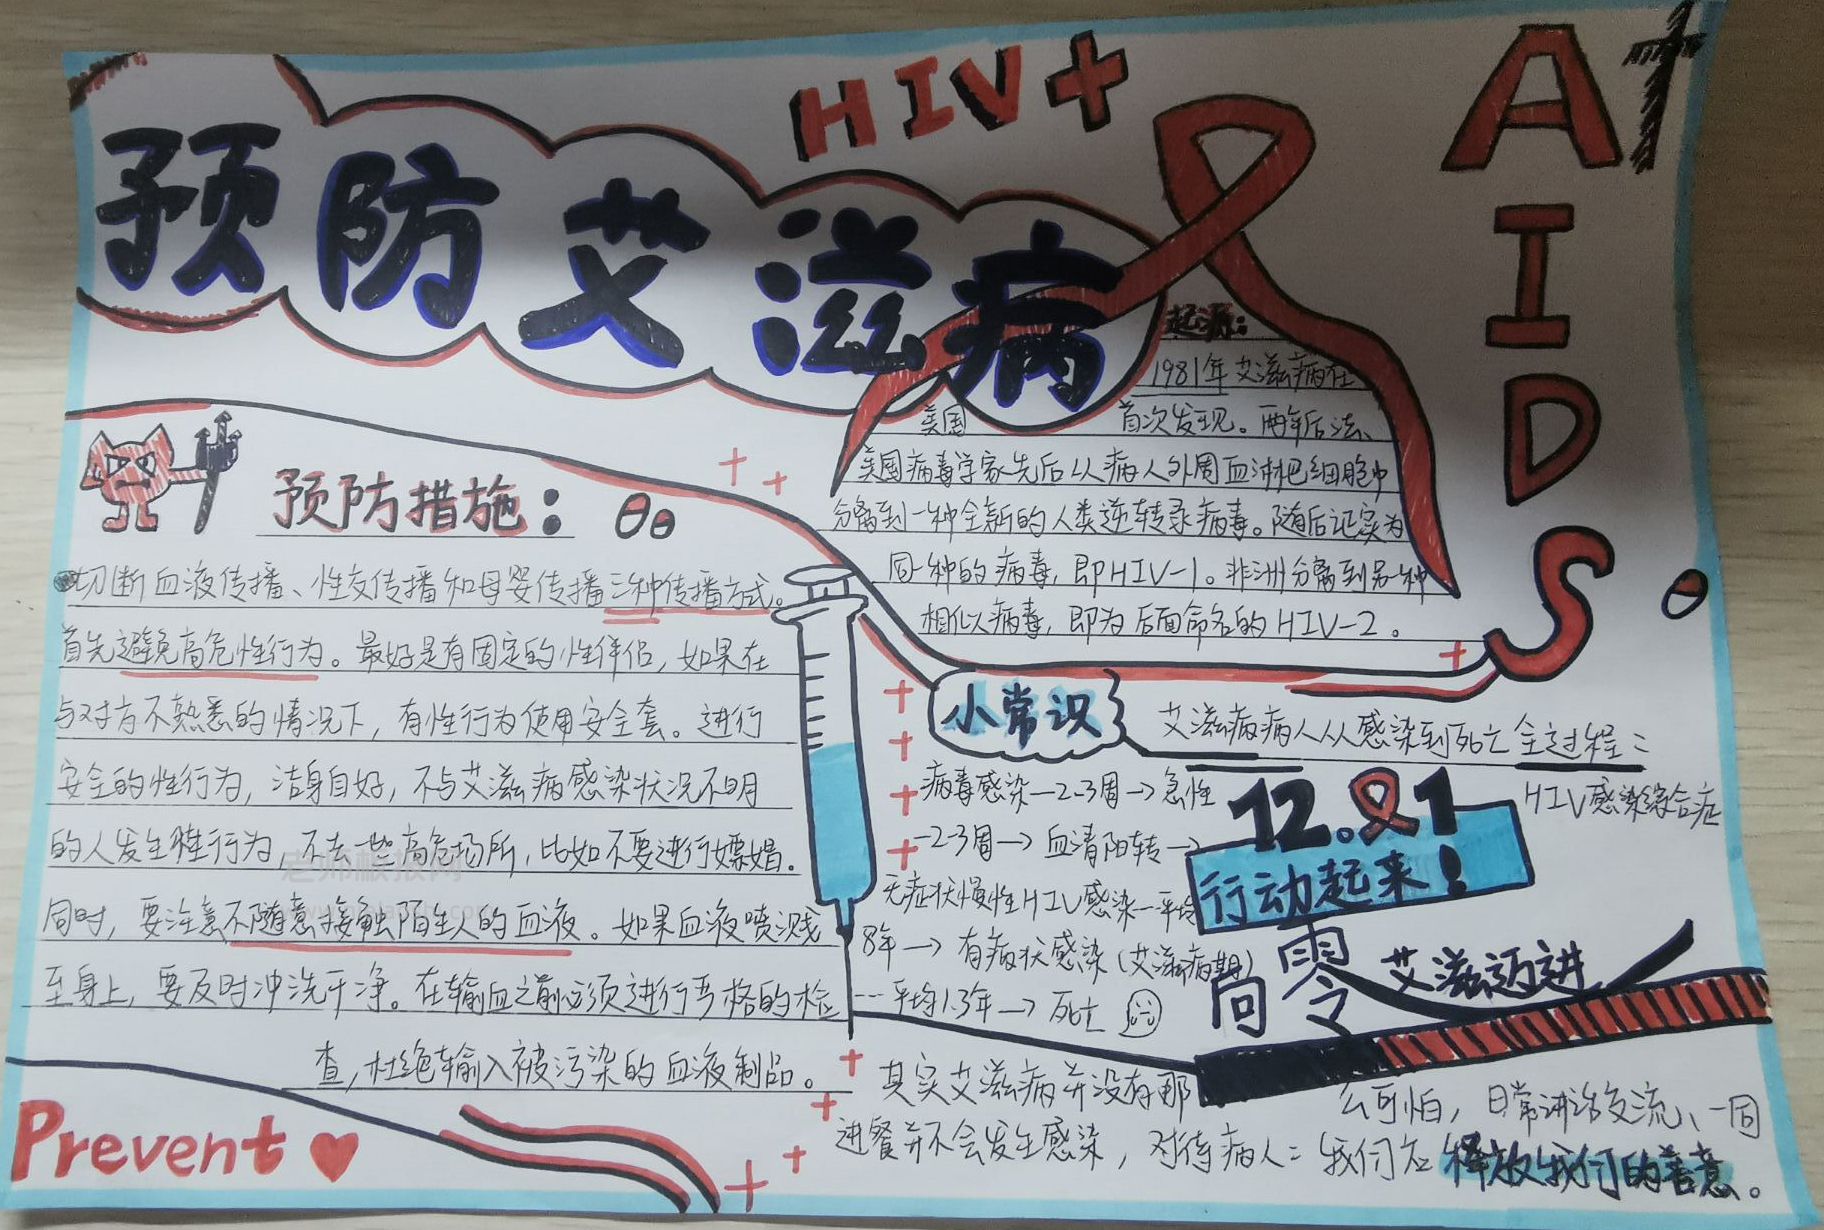 HIV+
AIDS
预防艾滋病
预防措施：
切断血液传播、性交传播和母婴传播三种传播方式。
首先避免高危性行为。最好是有固定的性伴侣，如果在
与对方不熟悉的情况下，有性行为使用安全套。进行
安全的性行为，洁身自好，不与艾滋病感染状况不明
的人发生性行为，不去一些高危场所，比如不要进行嫖娼。
同时，要注意不随意接触陌生人的血液。如果血液喷溅
至身上，要及时冲洗干净。在输血之前必须进行严格的检
查，杜绝输入被污染的血液制品。
Prevent
起源：
1981年艾滋病在
美国 首次发现。两年后法、
美国病毒学家先后从病人外周血淋巴细胞中
分离到一种全新的人类逆转录病毒。随后证实为
同一种的病毒，即HIV-1。非洲分离到另一种
相似病毒，即为后面命名的HIV-2。
小常识
艾滋病病人从感染到死亡全过程：
病毒感染—2-3周→急性 HIV感染综合症
—2-3周→血清阳转→
无症状慢性HIV感染—平均
8年→有病状感染（艾滋病期）
---平均1.3年→死亡
12.1
行动起来！
向零艾滋迈进
其实艾滋病并没有那么可怕，日常讲话交流、一同
进餐并不会发生感染，对待病人：我们应释放我们的善意。
老师板报网